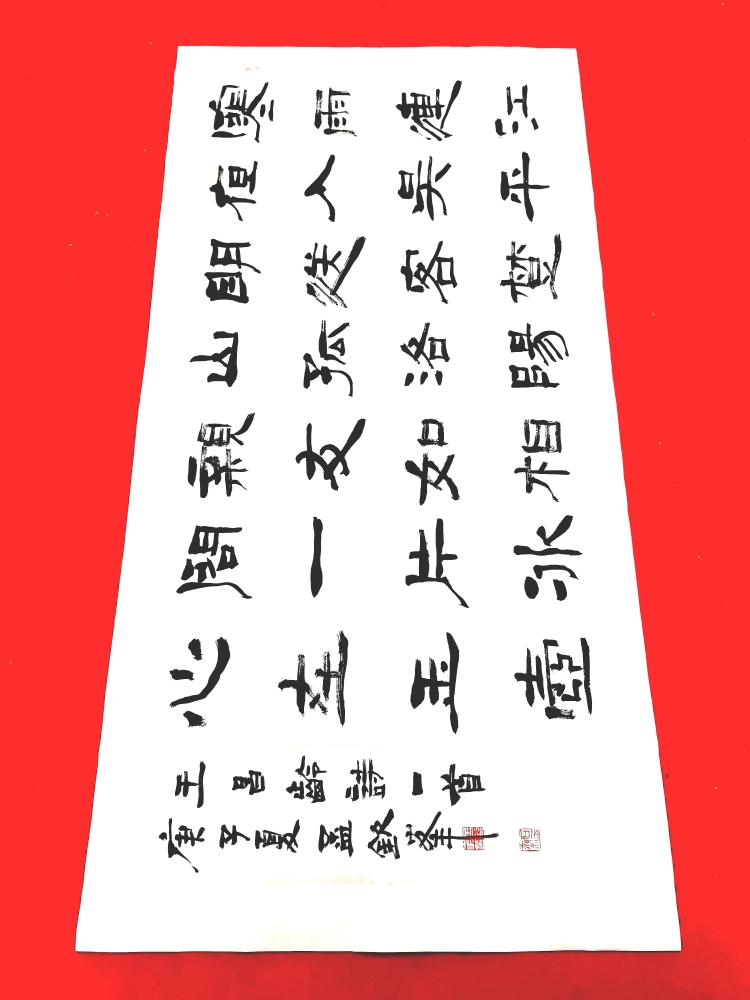 寒雨連江
夜入吳平
明送客楚
山孤洛陽
親友如相
問一片冰
心在玉壺
王昌齡詩一首
庚子夏孟欽峯